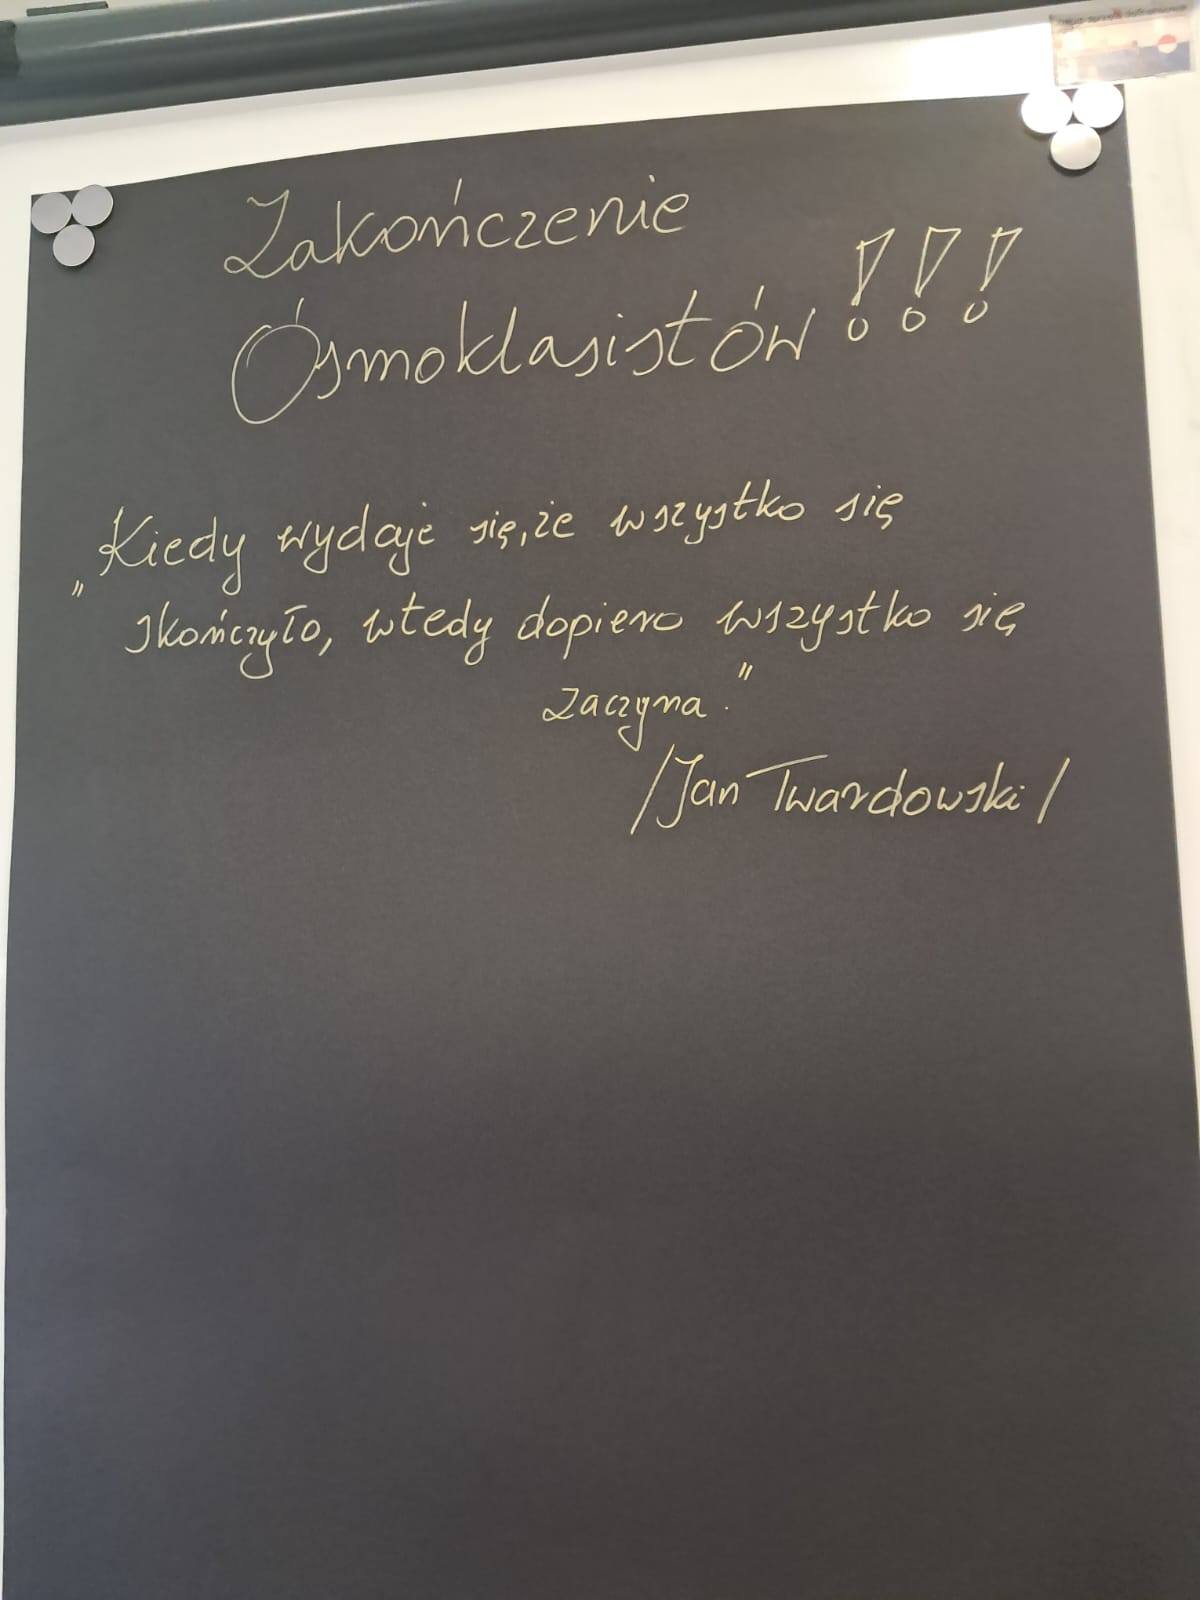 Zakończenie
Ósmoklasistów!!!
„Kiedy wydaje się, że wszystko się
skończyło, wtedy dopiero wszystko się
zaczyna."
/Jan Twardowski/